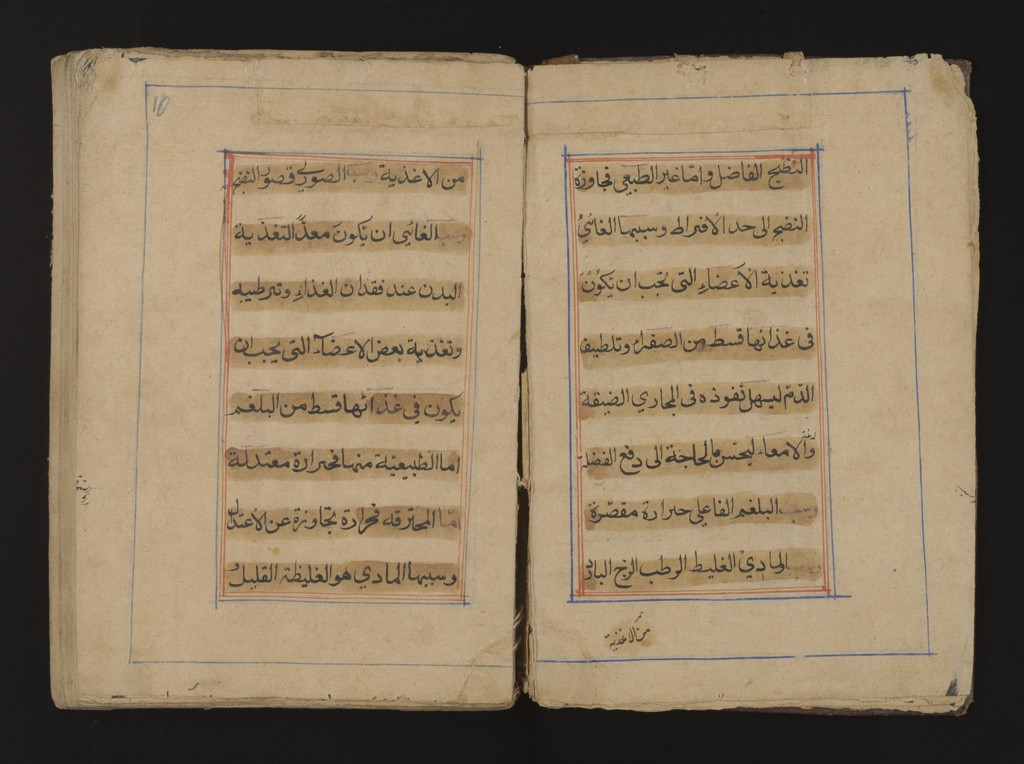 النضج الفاضل واما غير الطبعي فمجاوزة
النضج الى حد الافراط وسببها الغائيُ
تغذية الاعضاءِ التى يجب ان يَكُونَ
فى غذائها قسط من الصفراء وتلطيف
الدّم ليسهل نفوذه فى المجاري الضيقة
والامعاء ليحسن بالحاجة الى دفع الفضلة
وسبب البلغم الفاعلي حرارة مقصّرة
وسببه المادي الغليظ الرطب اللزج البارد
من الاغذية
من الاغذية وسببه الصوري قصور النضج
وسببه الغائى ان يَكونَ معدًّا لتغذية
البدن عند فقدان الغذاءِ وترطيبه
وتغذية بعض الاعضآء التى يجب ان
يكون في غذائها قسط من البلغم
اما الطبيعيّة منها فحرارة معتدلة
امّا المحترقه فحرارة مجاوزة عن الاعتدال
وسببها المادي هو الغليظة القليلُ